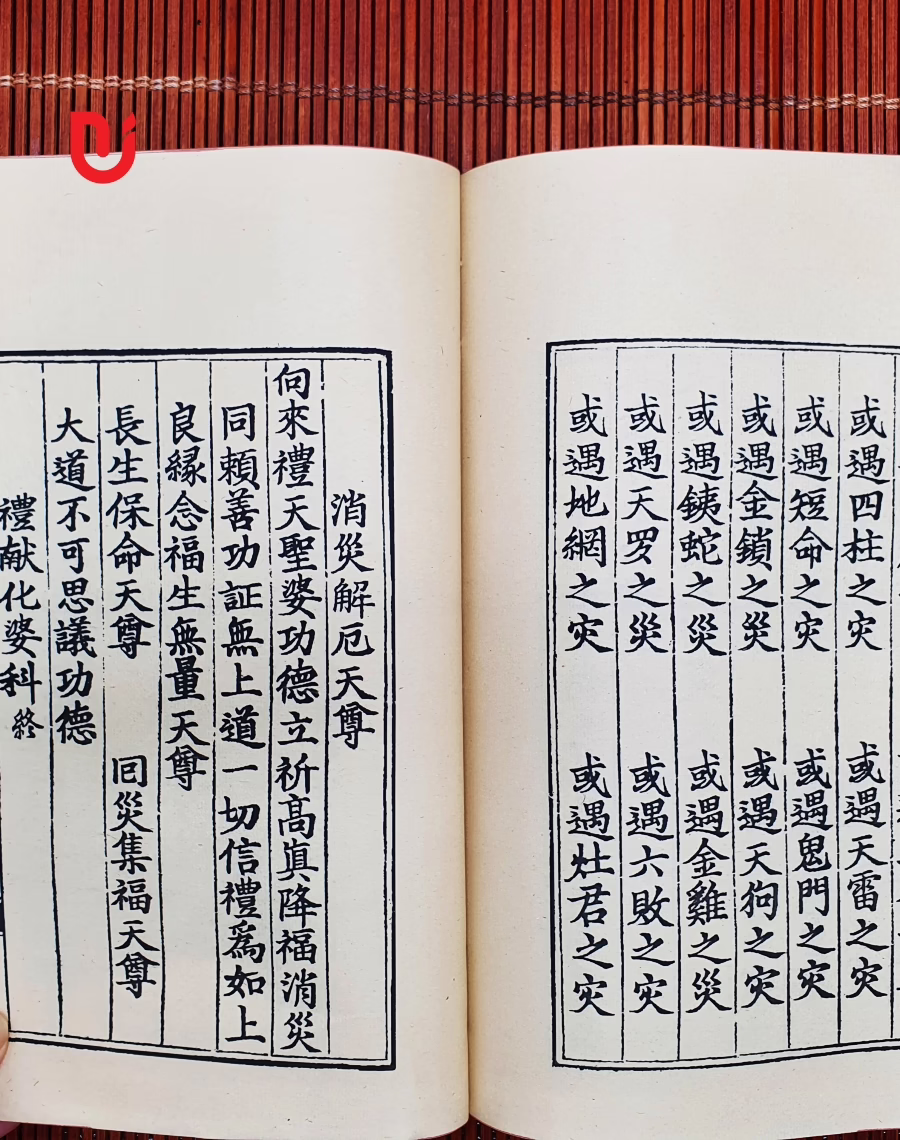 或遇四柱之灾　或遇天雷之灾
或遇短命之灾　或遇鬼門之灾
或遇金鎖之災　或遇天狗之灾
或遇銕蛇之災　或遇金雞之災
或遇天罗之災　或遇六敗之灾
或遇地網之灾　或遇灶君之灾
消災解厄天尊
向來禮天聖婆功德立祈高眞降福消災
同賴善功証無上道一切信禮爲如上
良緣念福生無量天尊
長生保命天尊　囘災集福天尊
大道不可思議功德
禮献化婆科終